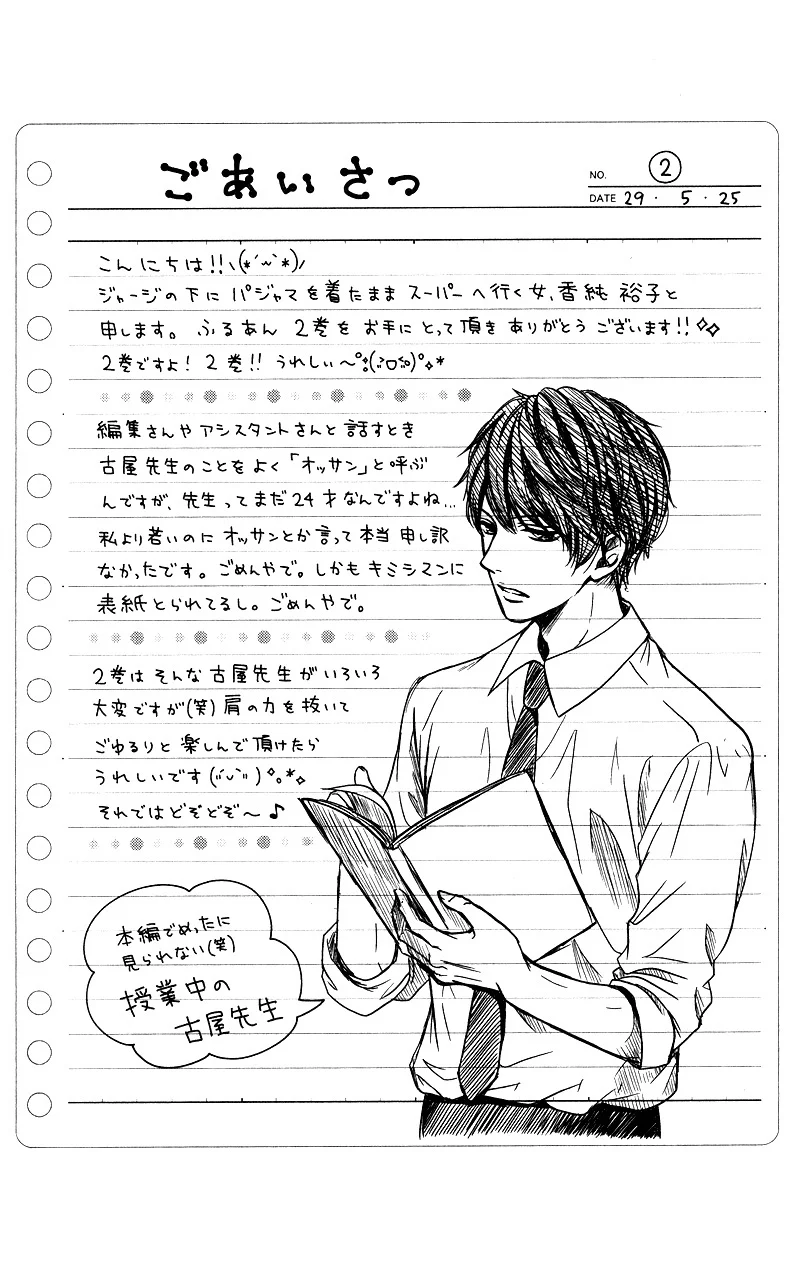 ごあいさつ
NO. ②
DATE 29 · 5 · 25
こんにちは!!\(*´∽`*)/
ジャージの下にパジャマを着たままスーパーへ行く女、香純裕子と
申します。ふるあん2巻をお手にとって頂きありがとうございます!!
2巻ですよ!2巻!!うれしい〜
編集さんやアシスタントさんと話すとき
古屋先生のことをよく「オッサン」と呼ぶ
んですが、先生ってまだ24才なんですよね...
私より若いのにオッサンとか言って本当申し訳
なかったです。ごめんやで。しかもキミシマンに
表紙とられてるし。ごめんやで。
2巻はそんな古屋先生がいろいろ
大変ですが(笑)肩の力を抜いて
ごゆるりと楽しんで頂けたら
うれしいです
それではどぞどぞ〜♪
本編でめったに
見られない(笑)
授業中の
古屋先生